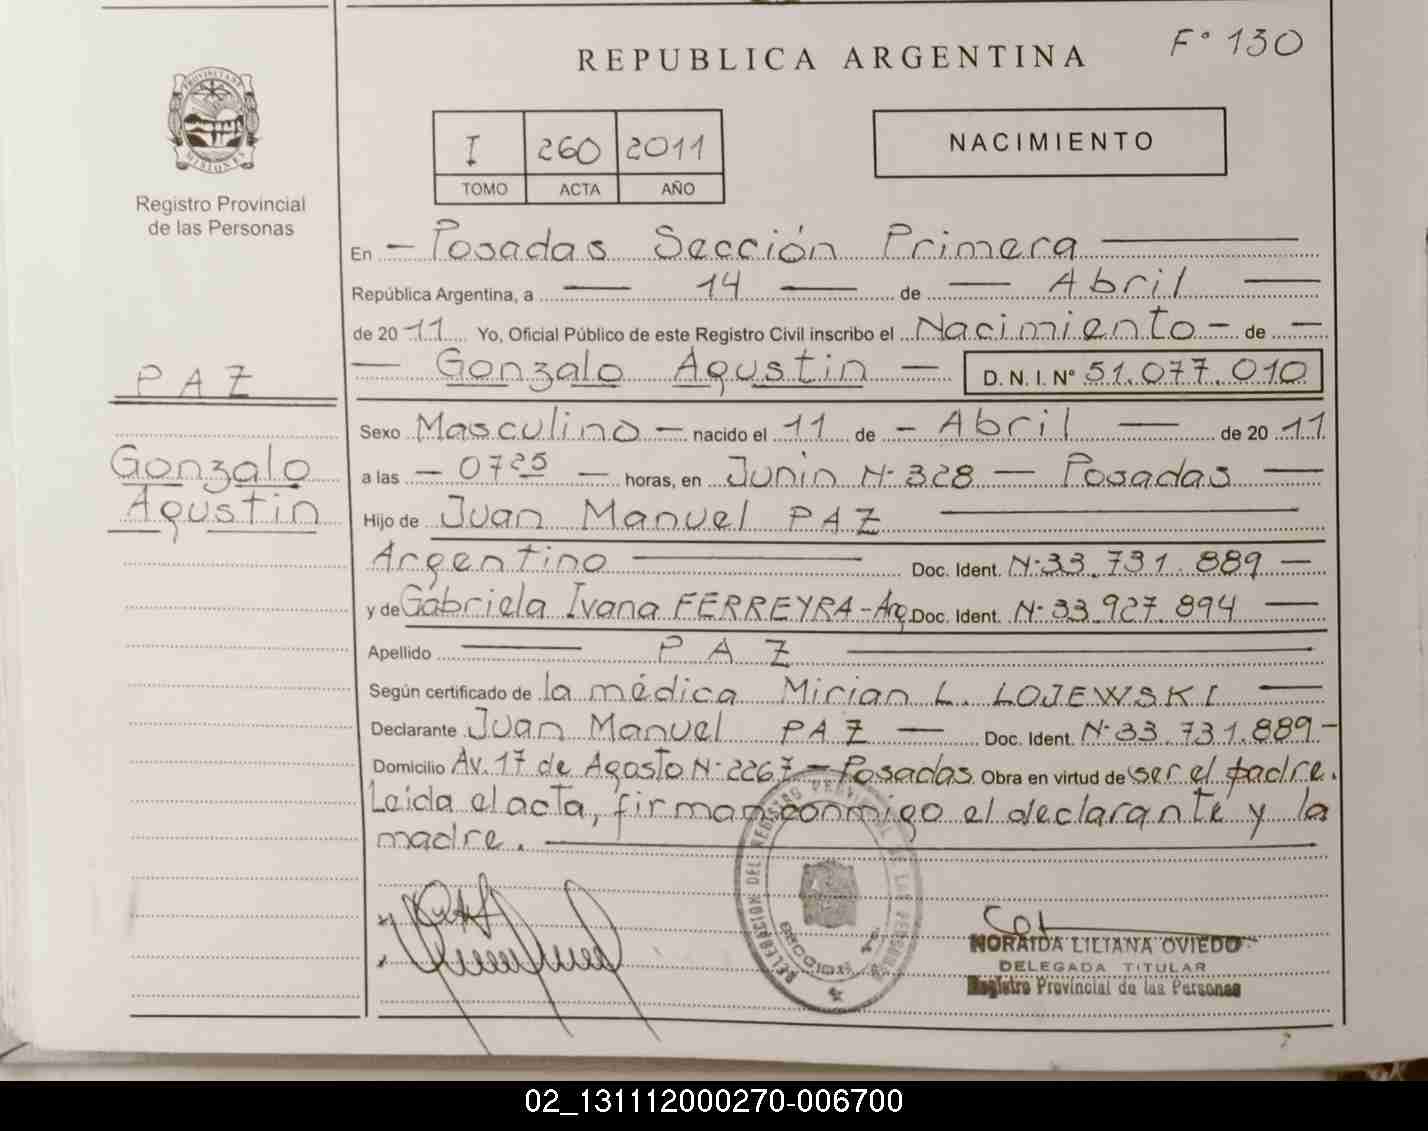 F° 130
REPUBLICA ARGENTINA
PROVINCIA DE MISIONES
Registro Provincial
de las Personas
I 260 2011
TOMO ACTA AÑO
NACIMIENTO
En - Posadas Sección Primera
República Argentina, a 14 de Abril
de 2011 Yo, Oficial Público de este Registro Civil inscribo el Nacimiento - de -
Gonzalo Agustin - D. N. I. N° 51.077.010
PAZ
Gonzalo
Agustin
Sexo Masculino - nacido el 11 de - Abril - de 2011
a las - 0725 - horas, en Junin N° 328 - Posadas
Hijo de Juan Manuel PAZ
Argentino Doc. Ident. N° 33.731.889 -
y de Gabriela Ivana FERREYRA - Arg. Doc. Ident. N° 33.927.894
Apellido PAZ
Según certificado de la médica Mirian L. LOJEWSKI
Declarante Juan Manuel PAZ - Doc. Ident. N° 33.731.889 -
Domicilio Av. 17 de Agosto N° 2267 - Posadas Obra en virtud de ser el padre.
Leida el acta, firman conmigo el declarante y la
madre.
DELEGACION DEL REGISTRO PROVINCIAL DE LAS PERSONAS
NORAIDA LILIANA OVIEDO
DELEGADA TITULAR
Registro Provincial de las Personas
02_131112000270-006700